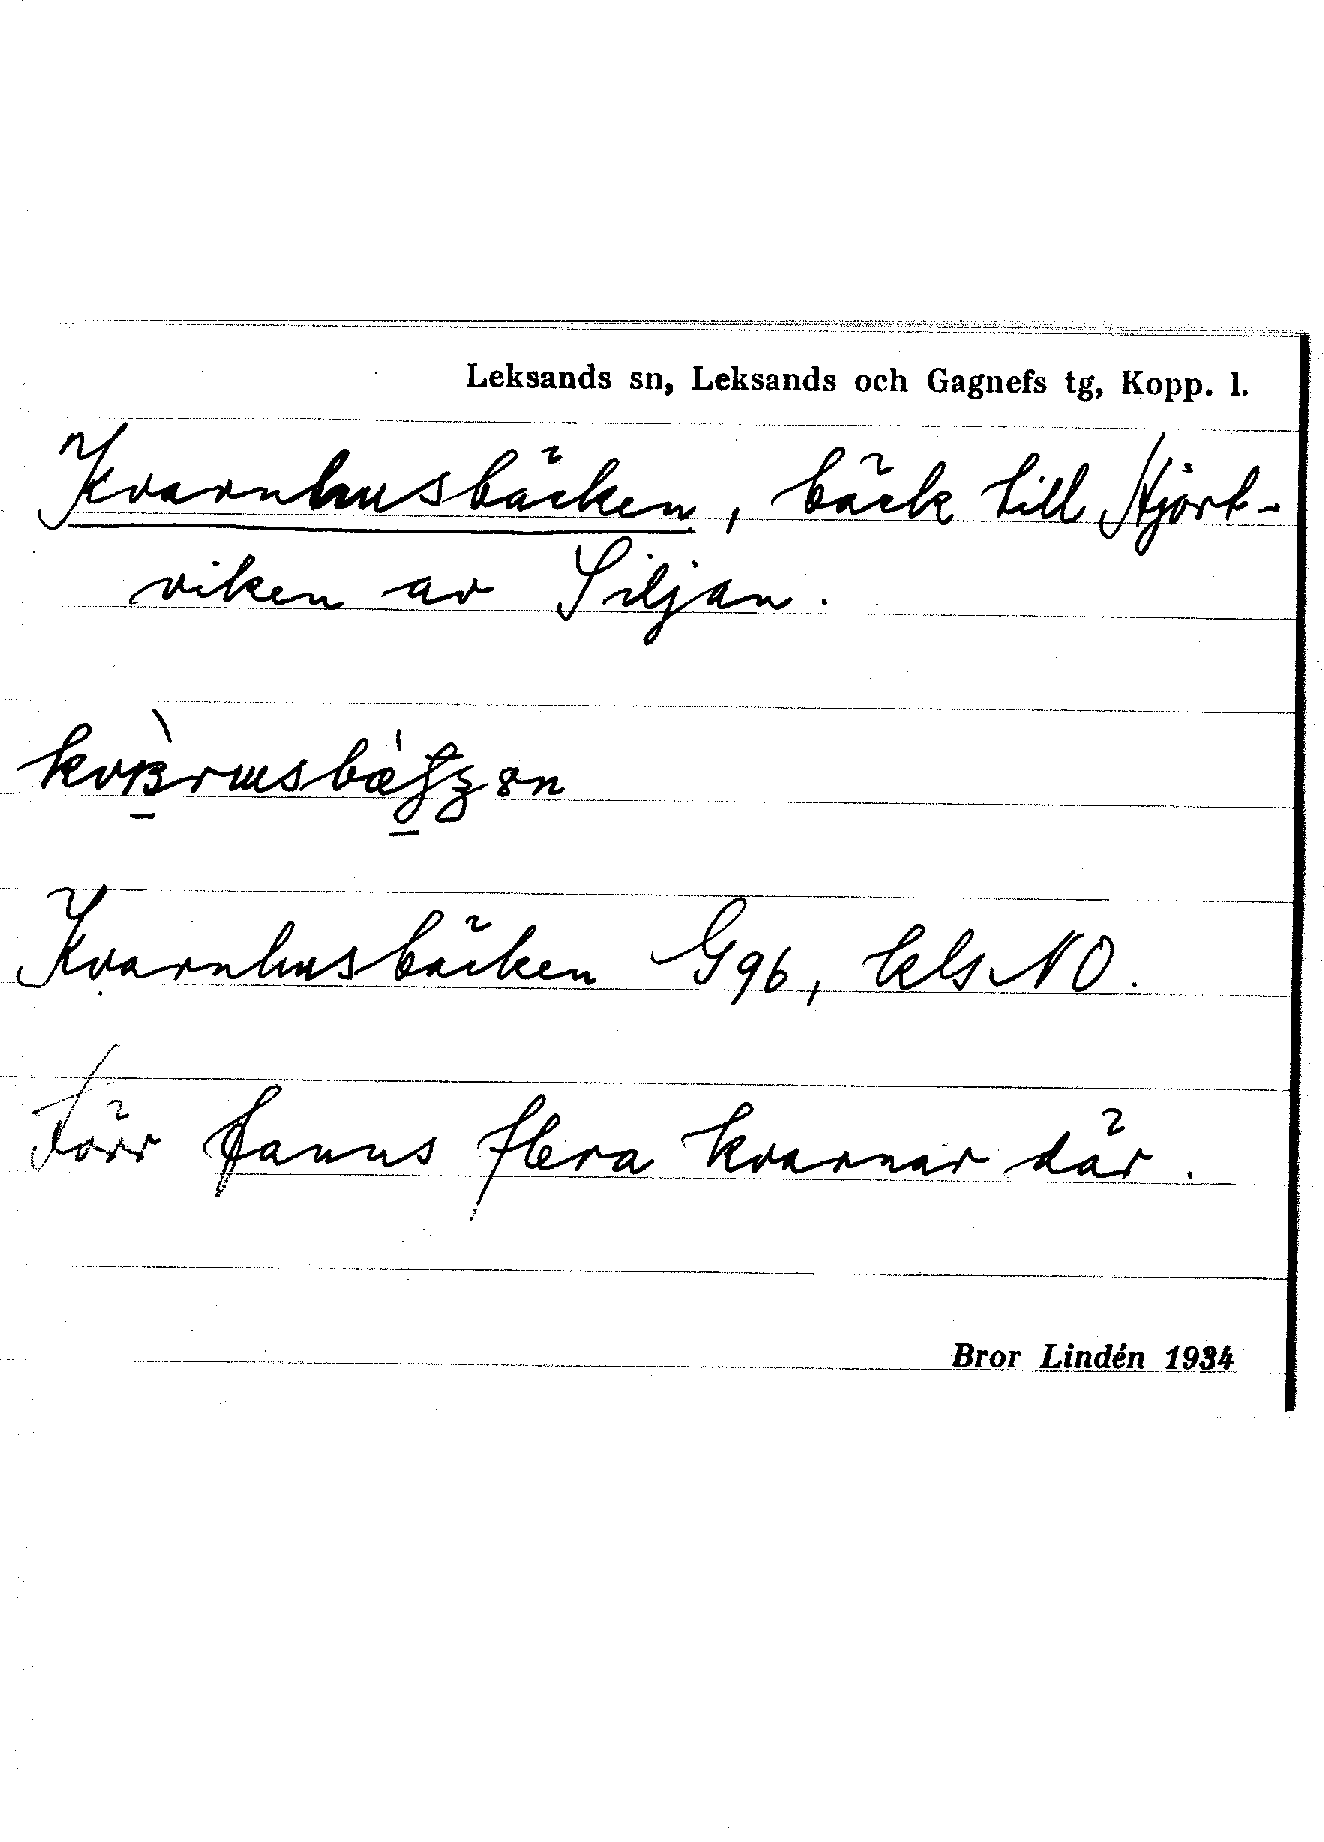 Leksands sn, Leksands och Gagnefs tg, Kopp. l.
Kvarnhusbäcken, bäck till Hjort-
viken av Siljan.
Kvarnhusbäcken G96, kls NO.
Förr fanns flera kvarnar där.
Bror Lindén 1934